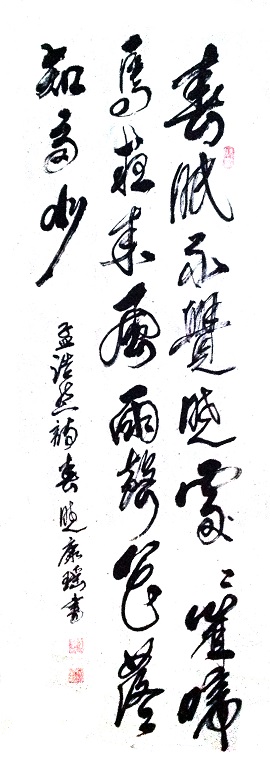 春眠不覺曉處〻聞啼
鳥夜來風雨聲花落
知多少
孟浩然詩春曉康瑶書